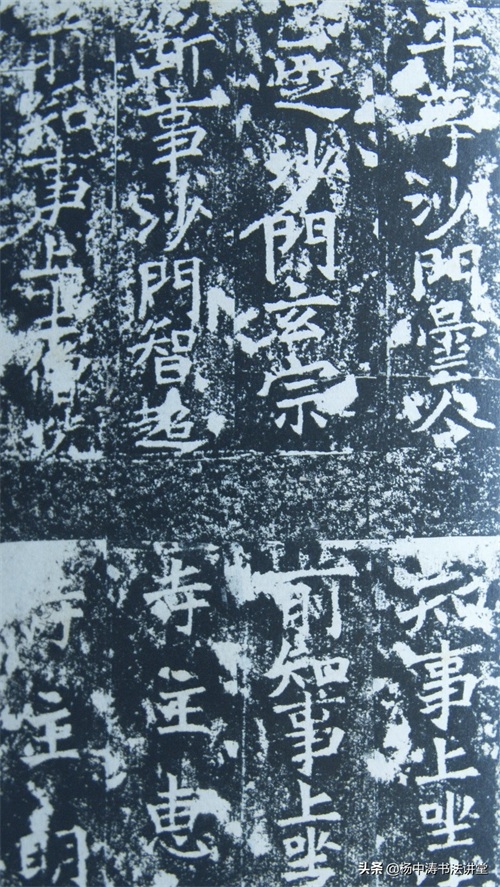 平等沙門曇公
沙門玄宗
斷事沙門智超
前知事上坐僧
知事上坐
前知事上坐
寺主惠
寺主明
头条 @杨中涛书法讲堂